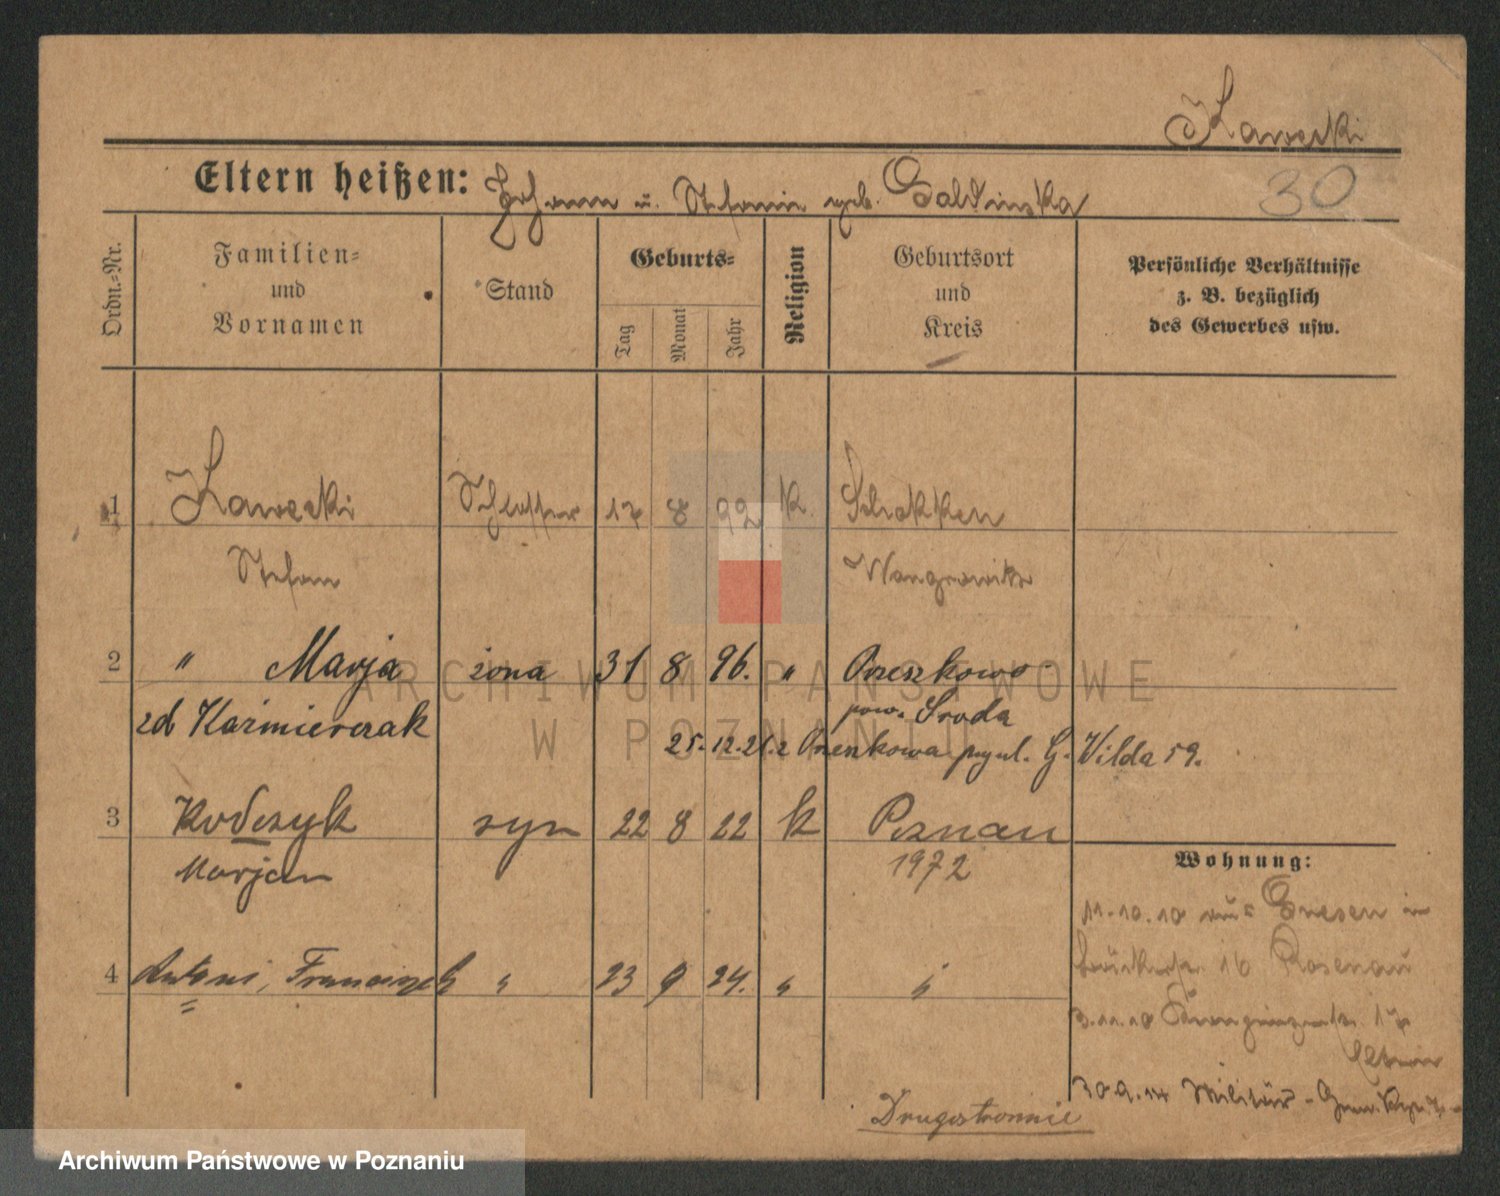 Kawecki
Eltern heißen: Johann u. Stefanie geb. Galdinska
30
Ordn.-Nr.
Familien-
und
Vornamen
Stand
Geburts-
Tag
Monat
Jahr
Religion
Geburtsort
und
Kreis
Persönliche Verhältnisse
z. B. bezüglich
des Gewerbes usw.
1 Kawecki Schlosser 17 8 92 k. Schokken
Stefan Wongrowitz
2 " Marja żona 31 8 96. "
zd Kaźmierczak pow. Sroda
25.12.21. z przyul. G. Wilda 59.
3 syn 22 8 22 k Poznań
Marjan 1972
4 Antoni, Franciszek " 23 9 24. " "
Wohnung:
11.10.10 aus Gnesen in
16 Posenau
3.11.10 17
Eltern
30.9.14 Militär -
Drugostronnie
ARCHIWUM PAŃSTWOWE
W POZNANIU
Archiwum Państwowe w Poznaniu